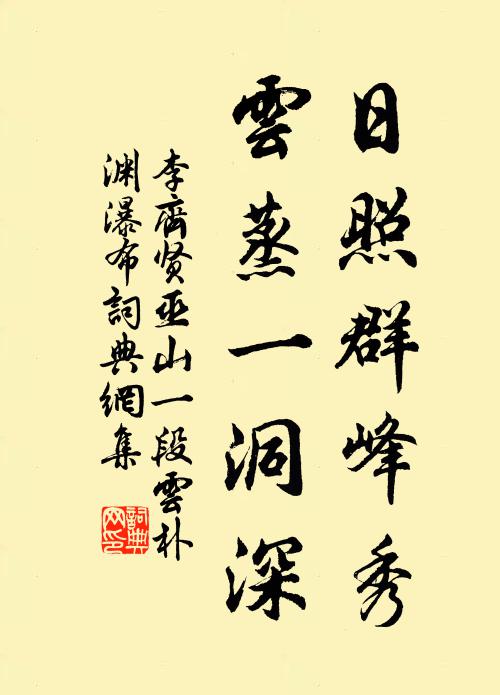 日照群峰秀
雲蒸一洞深
李齊贤巫山一段雲朴
渊瀑布詞典網集
詞典
网印